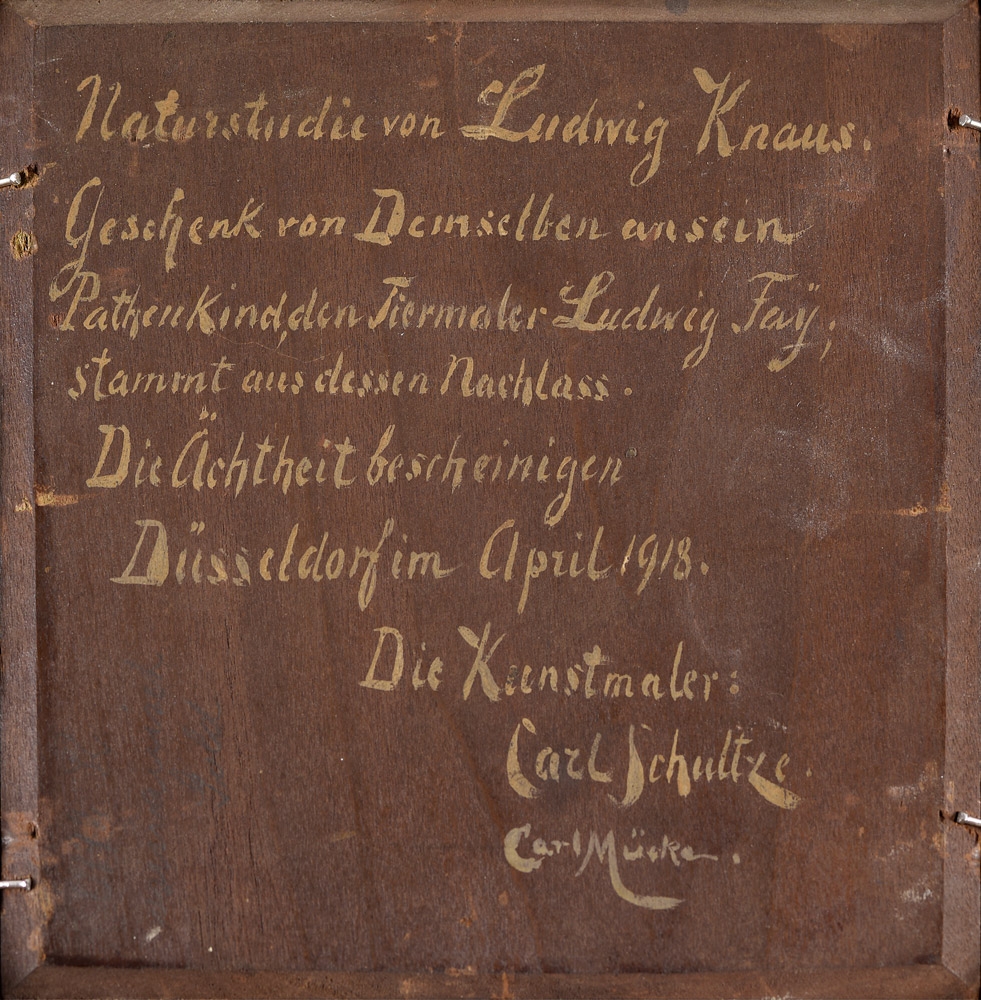 Naturstudie von Ludwig Knaus.
Geschenk von Demselben an sein
Pathenkind, den Tiermaler Ludwig Faÿ,
stammt aus dessen Nachlass.
Die Ächtheit bescheinigen
Düsseldorf im April 1918.
Die Kunstmaler:
Carl Schultze.
Carl Mücke.